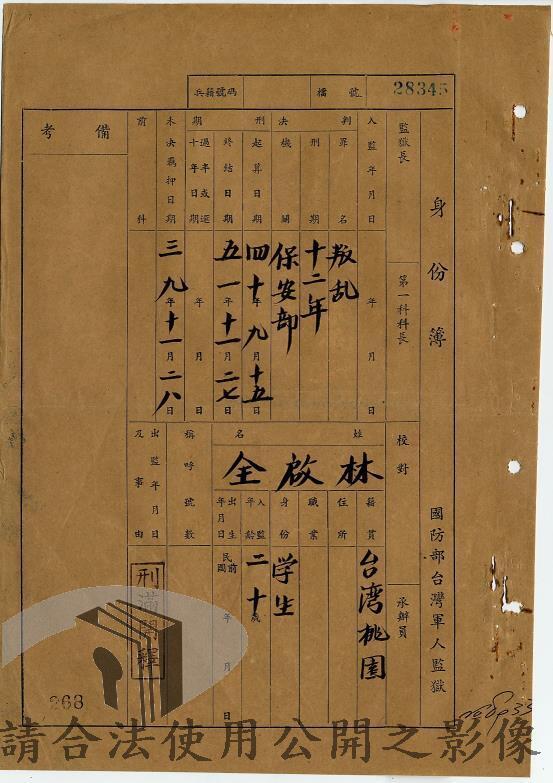 28345
檔號
兵籍號碼
身份簿
國防部台灣軍人監獄
監獄長
第一科科長
校對
承辦員
入監年月日
年月日
判決
罪名
叛乱
刑期
十二年
機關
保安部
刑期
起算日期
四十年九月十五日
終結日期
五一年十一月二七日
過半或逕十年日期
年月日
未決羈押日期
三九年十一月二八日
前科
備考
姓名
林啟全
籍貫
台湾桃園
住所
職業
身份
学生
入監年齡
二十歲
出生年月日
民前國年月日
稱呼號數
出監年月日及事由
刑滿開釋
268
請合法使用公開之影像